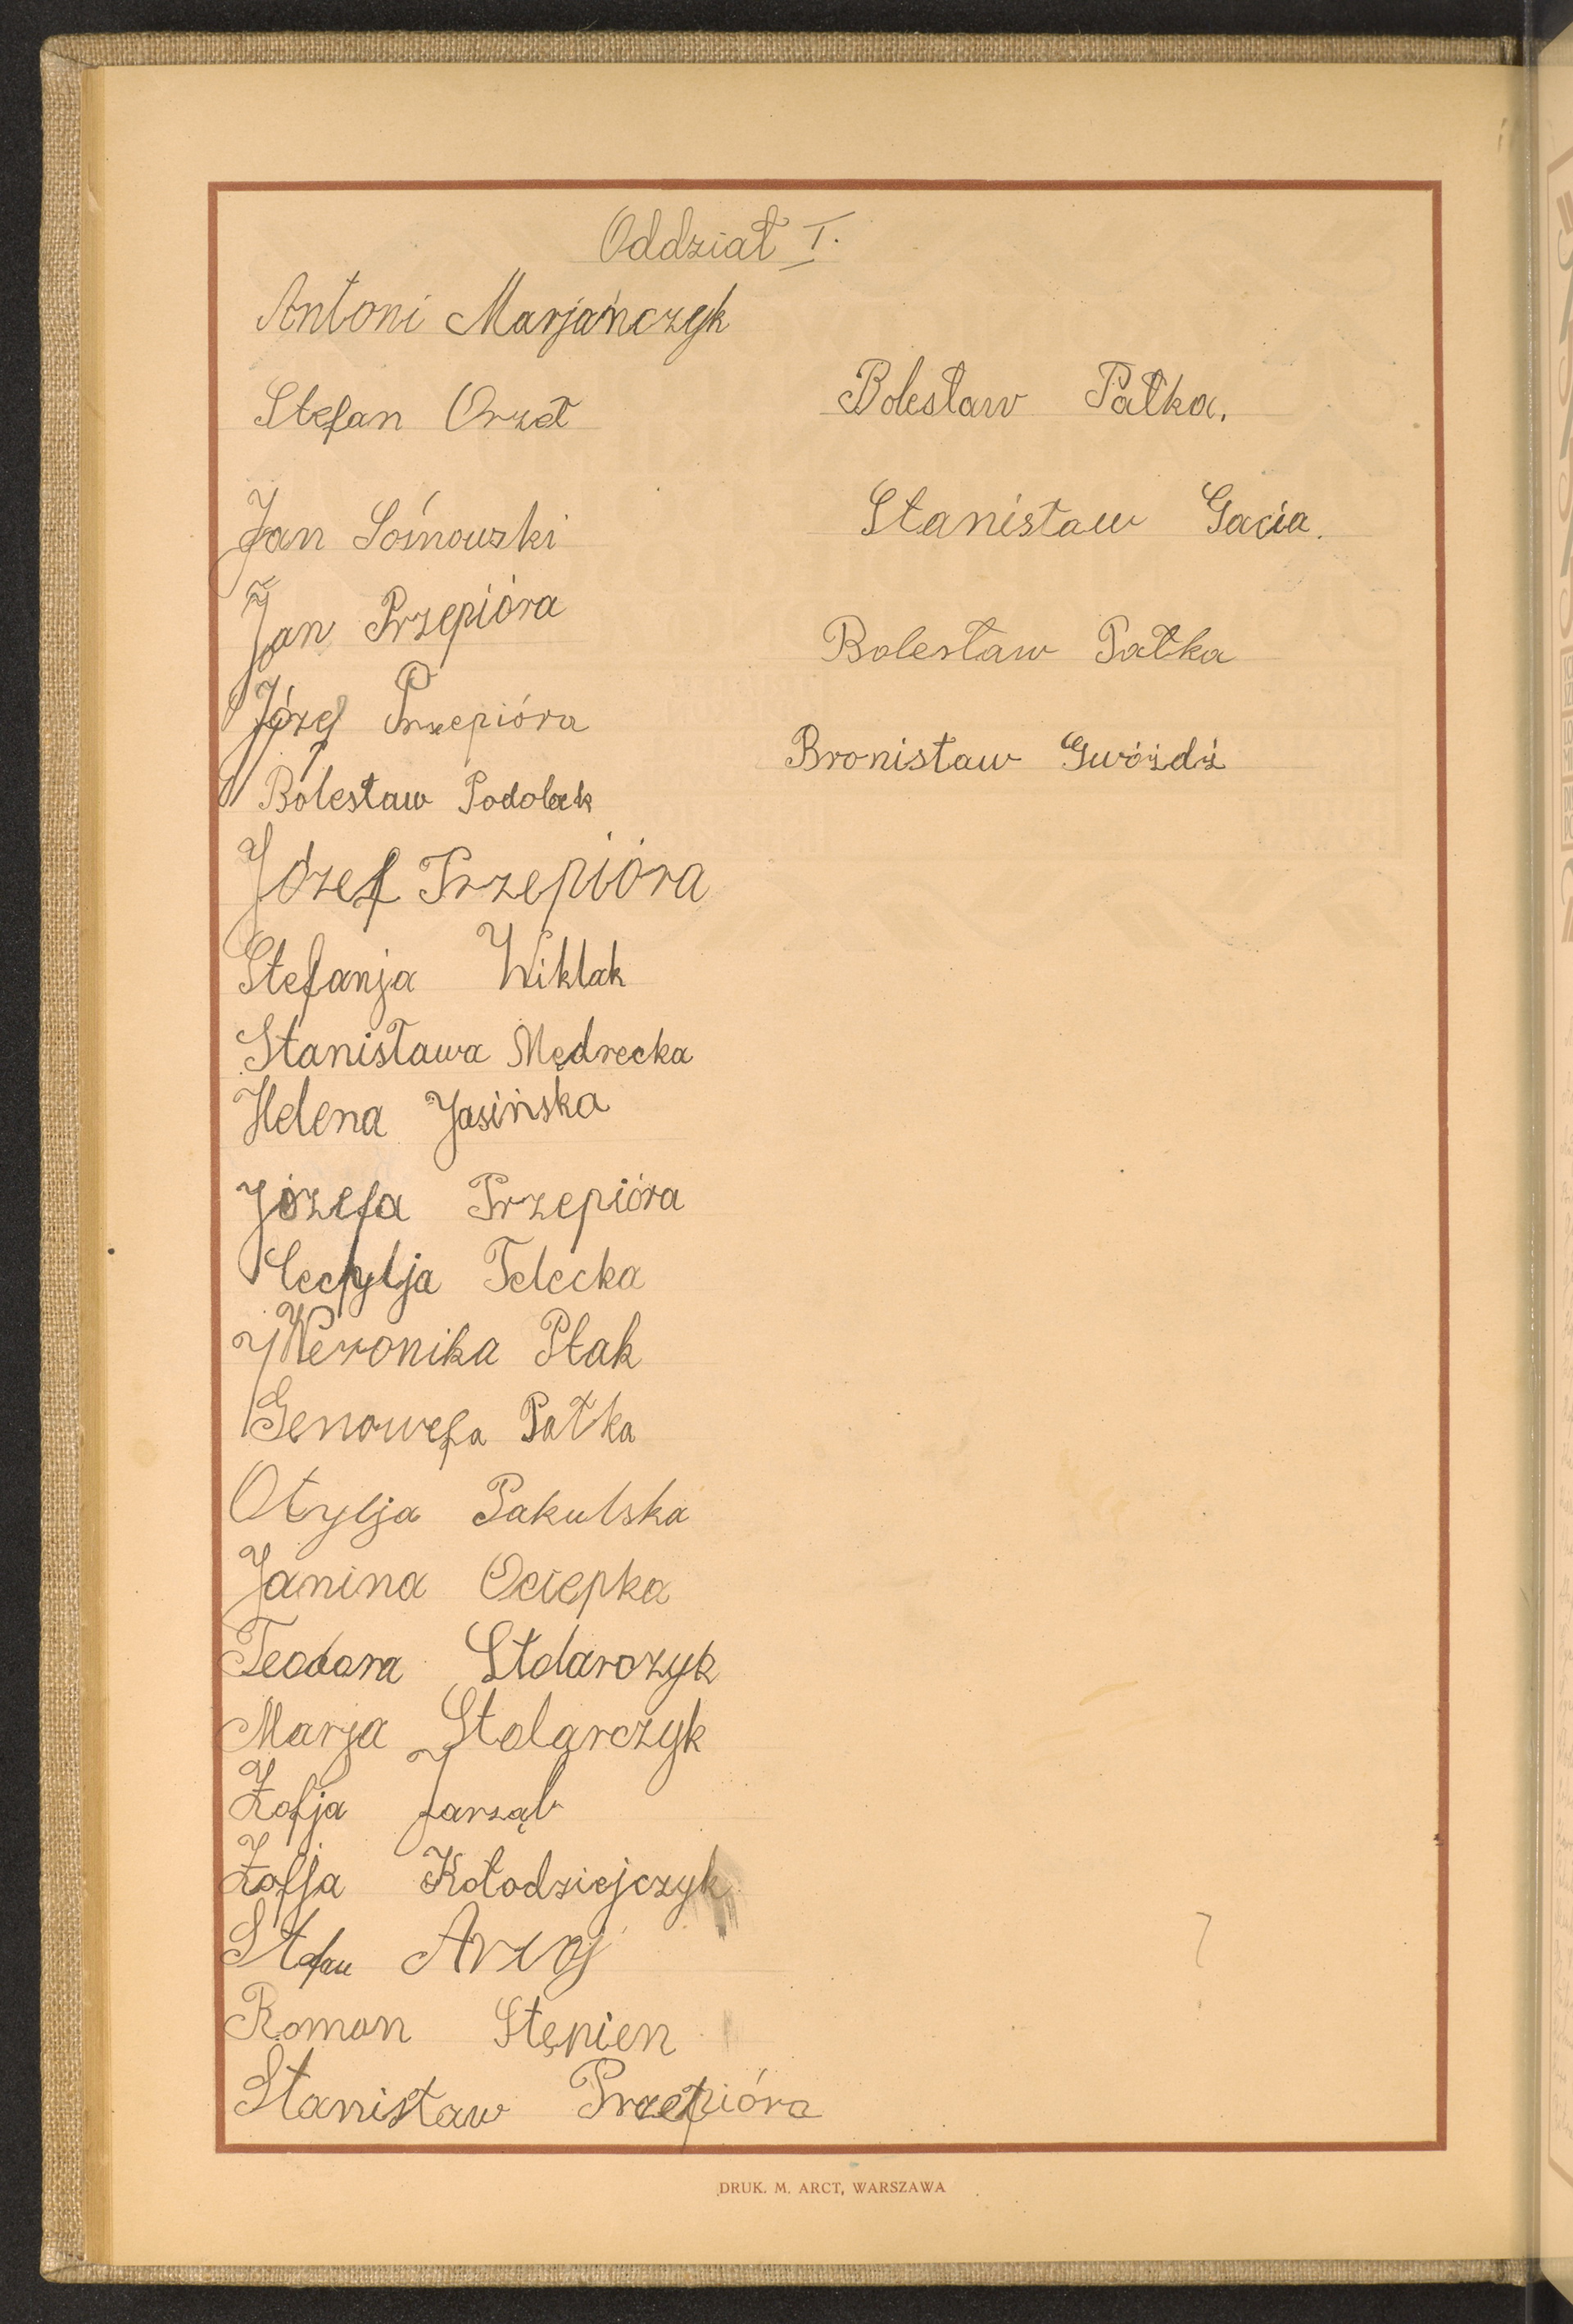 Oddział I.
Antoni Marjańczyk
Stefan Orzeł
Jan Sośnowski
Jan Przepióra
Józef Przepióra
Bolesław Podolak
Józef Przepióra
Stefanja Wiklak
Stanisława Mędrecka
Helena Jasińska
Józefa Przepióra
Cecylja Telecka
Weronika Ptak
Genowefa Pałka
Otylja Pakulska
Janina Ociepka
Teodora Stolarczyk
Marja Stolarczyk
Zofja Jarząb
Zofja Kołodziejczyk
Stefan
Roman Stępien
Stanisław Przepióra
Bolesław Pałka.
Stanisław Gacia.
Bolesław Pałka
Bronisław Gwóźdź
DRUK. M. ARCT, WARSZAWA